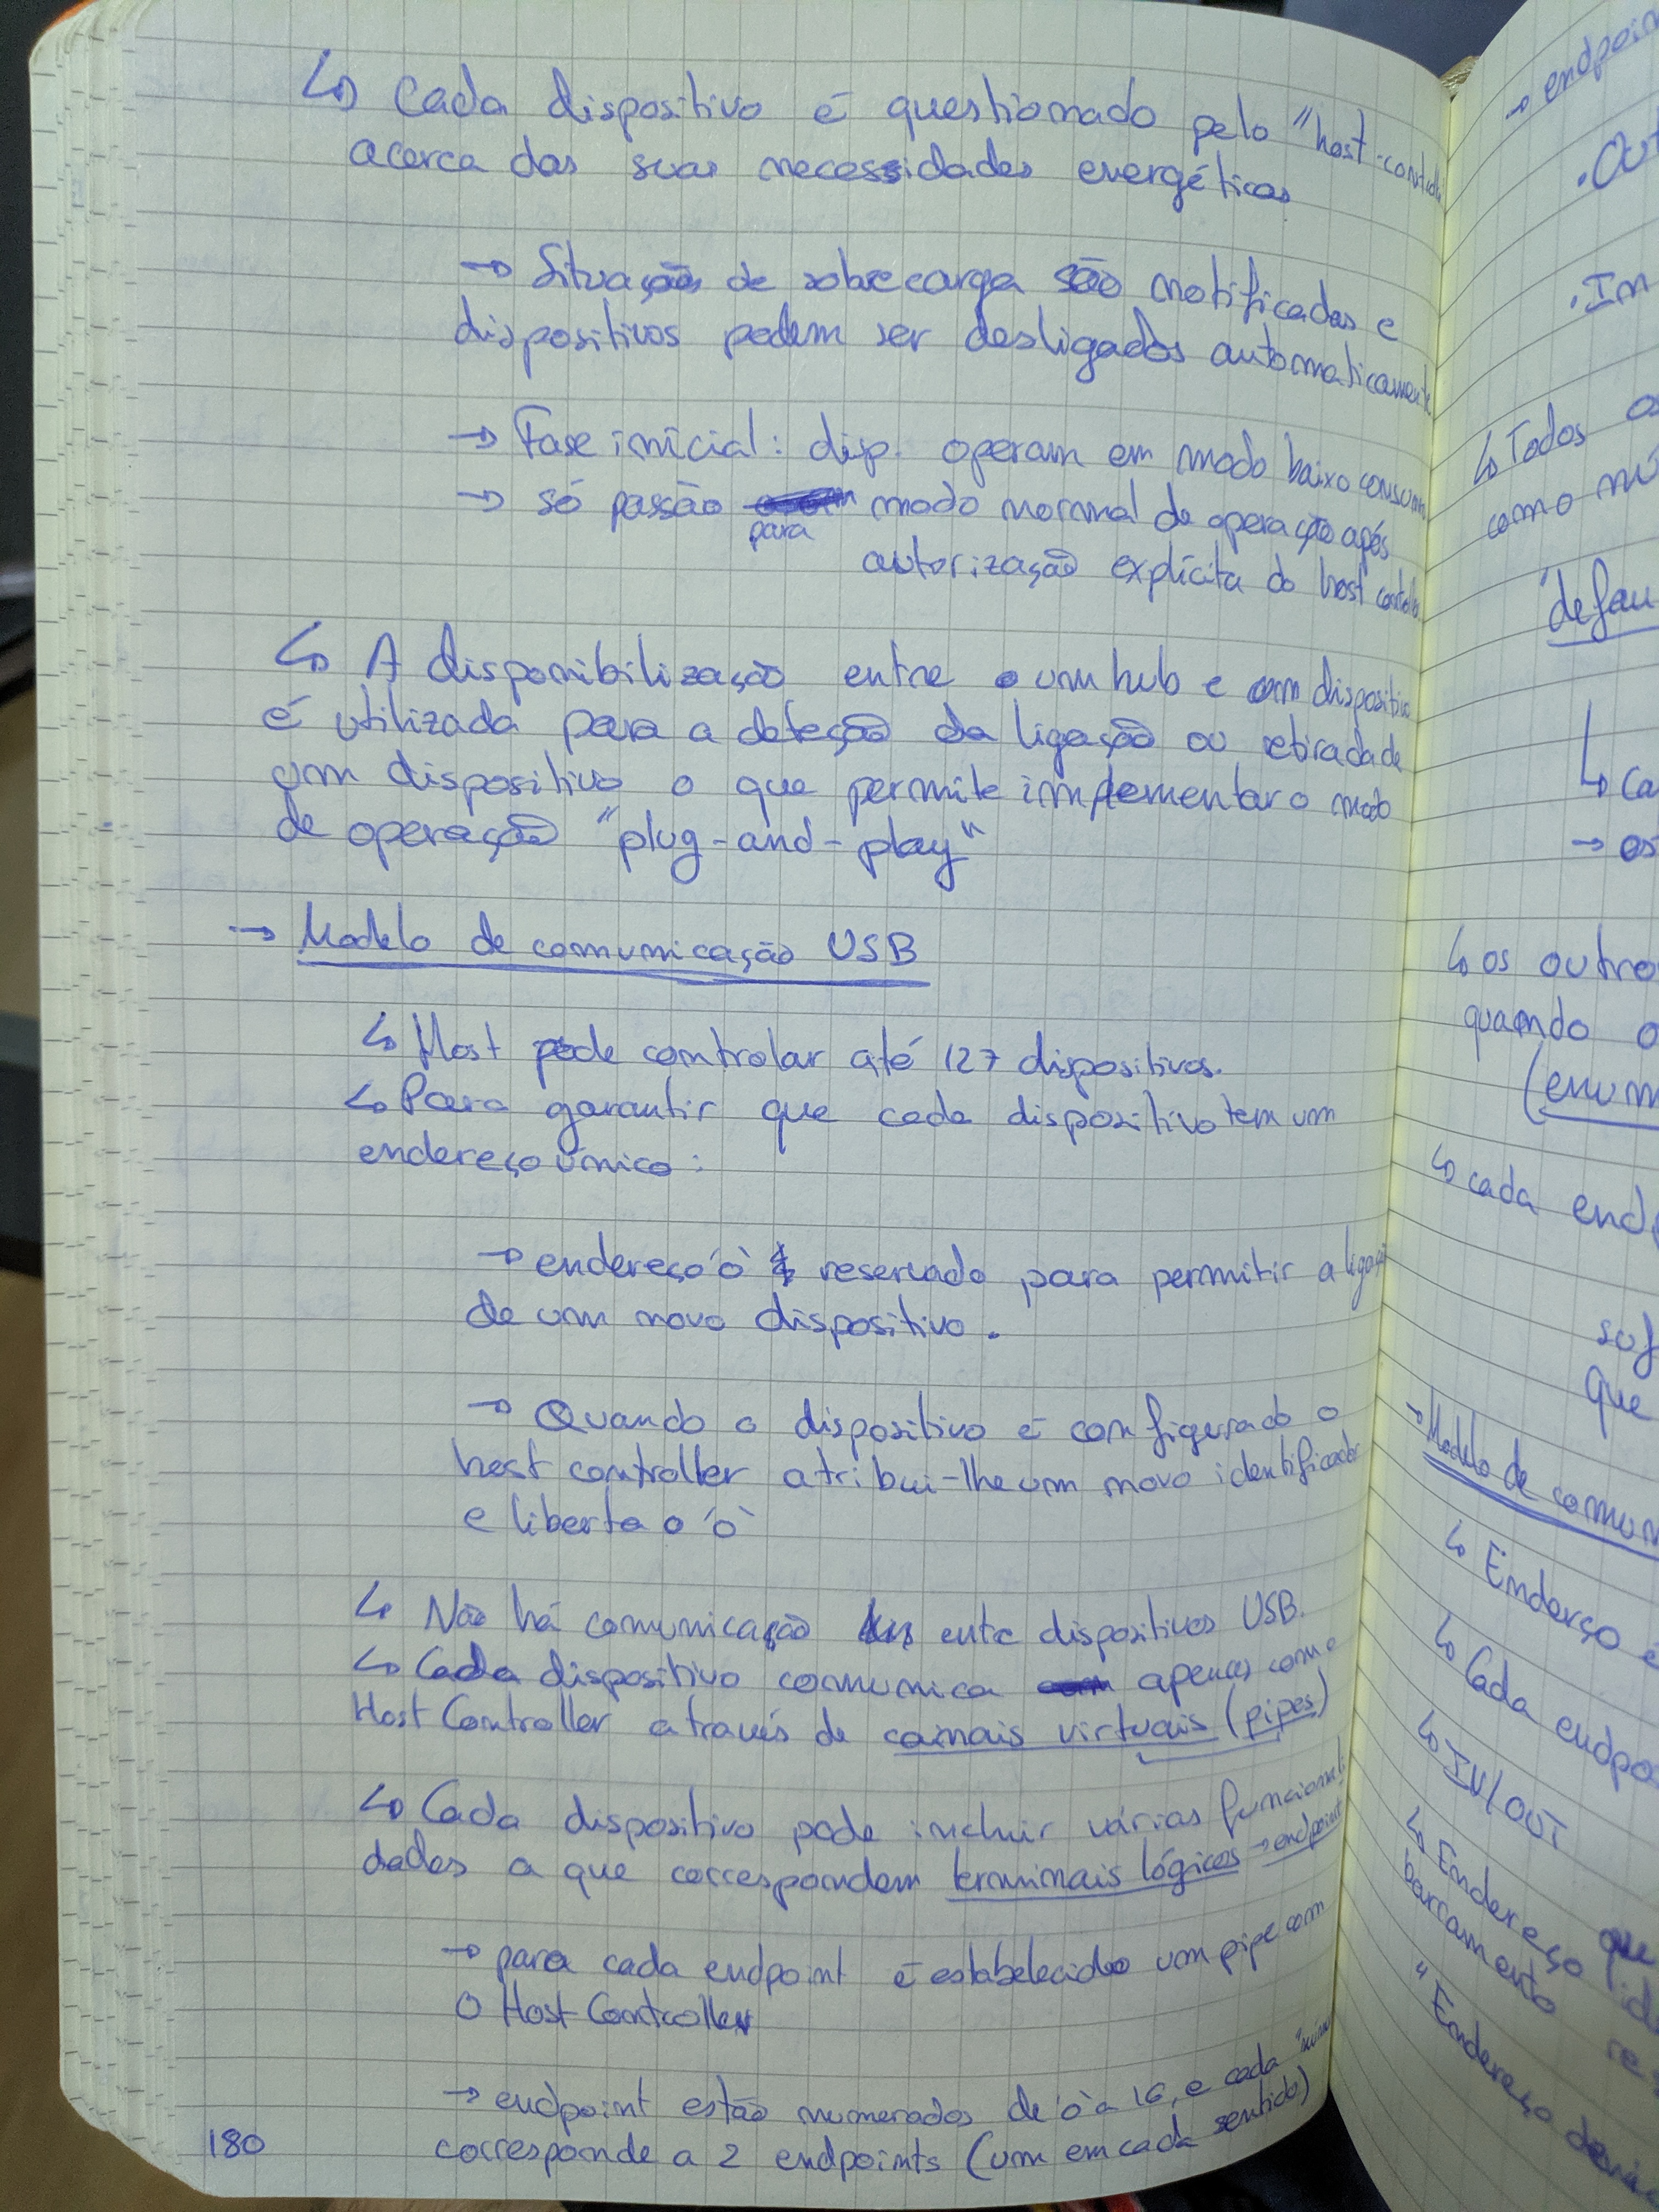 ↳ Cada dispositivo é questionado pelo "host-contr
acerca das suas necessidades energéticas
→ Situações de sobrecarga são notificadas e
dispositivos podem ser desligados automaticamente
→ Fase inicial: disp. operam em modo baixo consumo
→ só passão para modo normal de operação após
autorização explícita do host controller
↳ A disponibilização entre o um hub e um dispositivo
é utilizada para a deteção da ligação ou retirada de
um dispositivo o que permite implementar o modo
de operação "plug-and-play"
→ Modelo de comunicação USB
↳ Host pode controlar até 127 dispositivos.
↳ Para garantir que cada dispositivo tem um
endereço único:
→ endereço '0' é reservado para permitir a ligação
de um novo dispositivo.
→ Quando o dispositivo é configurado o
host controller atribui-lhe um novo identificador
e liberta o '0'
↳ Não há comunicação entre dispositivos USB.
↳ Cada dispositivo comunica apenas com o
Host Controller através de canais virtuais (pipes)
↳ Cada dispositivo pode incluir várias funcionali
dades a que correspondem terminais lógicos → endpoint
→ para cada endpoint é estabelecido um pipe com
o Host Controller
→ endpoint estão numerados de '0 a 16, e cada "núm
corresponde a 2 endpoints (um em cada sentido)
180
→ endpoin
. Out
. In
↳ Todos os
como
defau
↳ Ca
→ os
↳ os outro
quando o
(enum
↳ cada end
sof
que
→ Modelo de comun
↳ Enderço é
↳ Cada endpo
↳ IN/OUT
↳ Endereço que
barramento
"Endereço